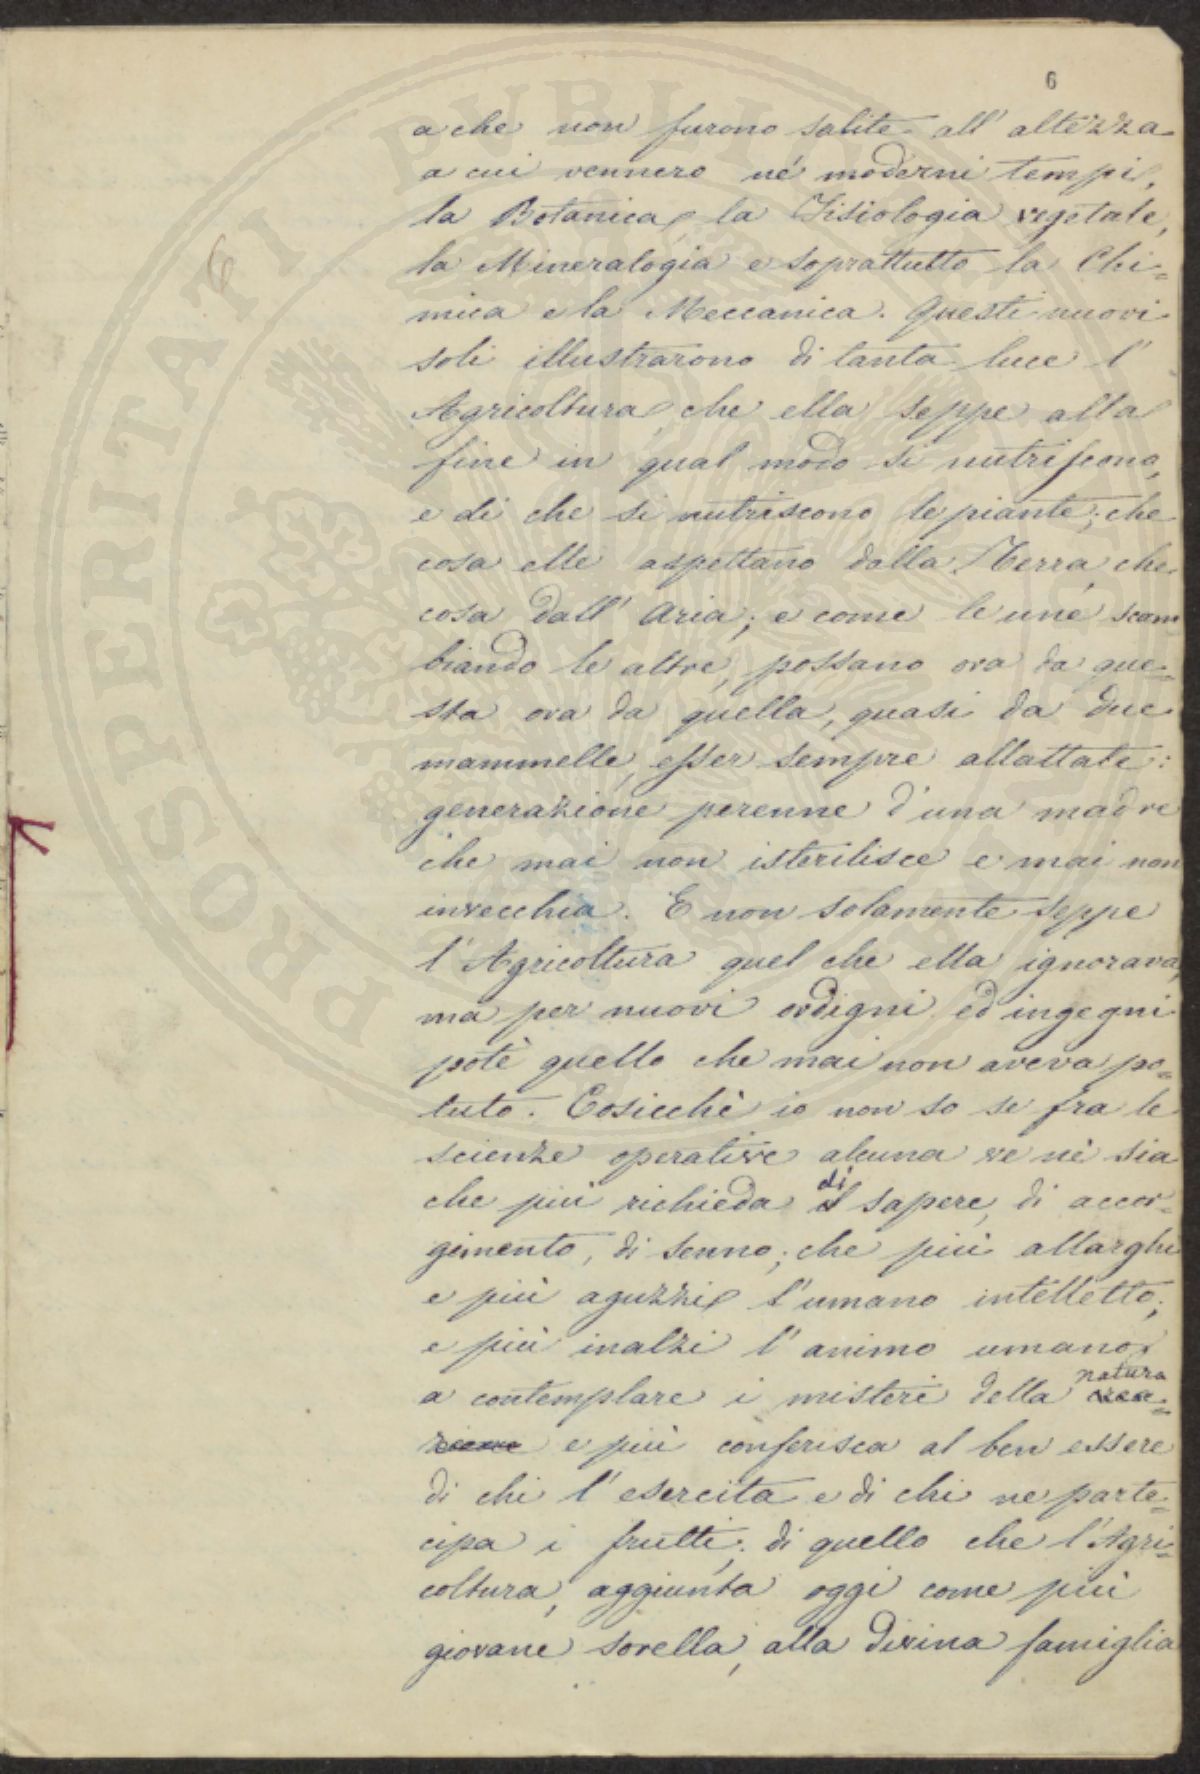 6
a che non furono salite all' altezza
a cui vennero ne' moderni tempi,
la Botanica, la Fisiologia vegetale,
la Mineralogia e soprattutto la Chi=
mica e la Meccanica. Questi nuovi
soli illustrarono di tanta luce l'
Agricoltura, che ella seppe alla
fine in qual modo si nutriscono,
e di che si nutriscono le piante; che
cosa elle aspettano dalla Terra, che
cosa dall' Aria; e come le une scam
biando le altre, possano ora da que=
sta ora da quella, quasi da due
mammelle, esser sempre allattate:
generazione perenne d'una madre
che mai non isterilisce e mai non
invecchia. E non solamente seppe
l'Agricoltura quel che ella ignorava,
ma per nuovi ordigni ed ingegni
potè quello che mai non aveva po=
tuto. Cosicchè io non so se fra le
scienze operative alcuna ve nè sia
che più richieda di sapere, di accor=
gimento, di senno; che più allarghi
e più aguzzi l'umano intelletto;
e più inalzi l'animo umano
a contemplare i misteri della natura crea=
zione e più conferisca al ben essere
di chi l'esercita e di chi ne parte=
cipa i frutti; di quello che l'Agri=
coltura, aggiunta oggi come più
giovane sorella, alla divina famiglia
6
PROSPERITATI PUBLICAE